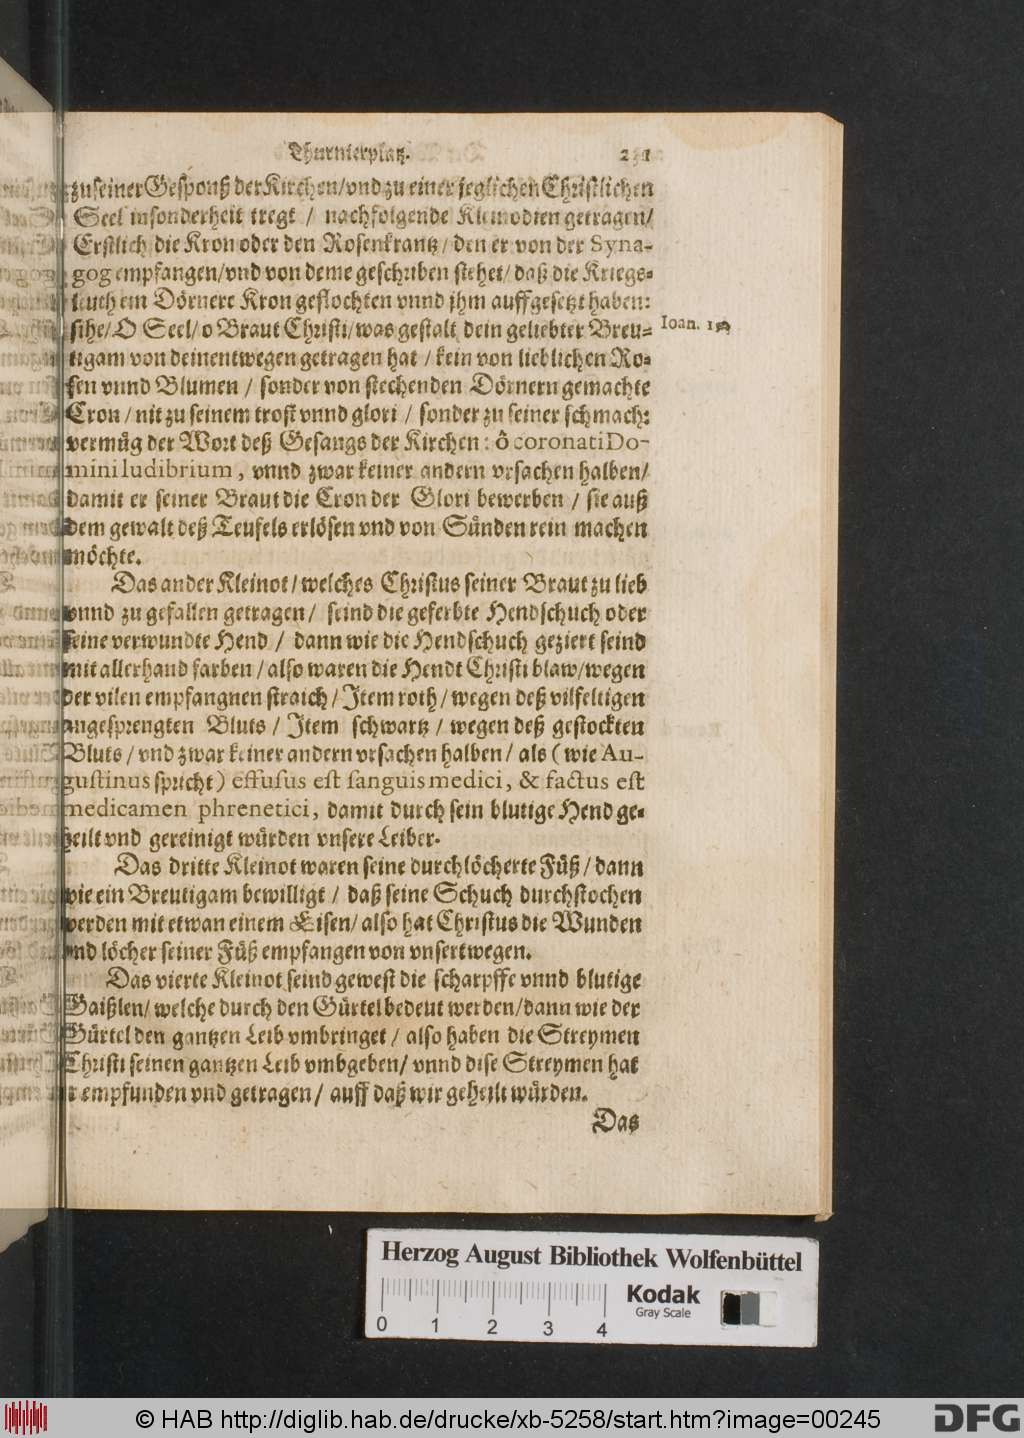 Thurnierplatz.
zu seiner Gesponß der Kirchen/vnd zu einer jeglichen Christlichen
Seel insonderheit tregt / nachfolgende Kleinodien getragen/
Erstlich die Kron oder den Rosenkrantz/ den er von der Syna-
gog empfangen/vnd von deme geschriben stehet/ daß die Kriegs-
leuth ein Dörnere Kron geflochten vnnd jhm auffgesetzt haben:
sihe/ O Seel/ o Braut Christi/ was gestalt dein geliebter Breu-
Ioan. 19
tigam von deinentwegen getragen hat / kein von lieblichen Ro-
sen vnnd Blumen / sonder von stechenden Dörnern gemachte
Cron / nit zu seinem trost vnnd glori / sonder zu seiner schmach:
vermüg der Wort deß Gesangs der Kirchen: ô coronati Do-
mini ludibrium, vnnd zwar keiner andern vrsachen halben/
damit er seiner Braut die Cron der Glori bewerben / sie auß
dem gewalt deß Teufels erlösen vnd von Sünden rein machen
möchte.
Das ander Kleinot/ welches Christus seiner Braut zu lieb
vnnd zu gefallen getragen/ seind die geferbte Hendschuch oder
seine verwundte Hend / dann wie die Hendschuch geziert seind
mit allerhand farben / also waren die Hendt Christi blaw/wegen
der vilen empfangnen straich/ Item roth/ wegen deß vilfeltigen
angesprengten Bluts / Item schwartz / wegen deß gestockten
Bluts / vnd zwar keiner andern vrsachen halben/ als (wie Au-
gustinus spricht) effusus est sanguis medici, & factus est
medicamen phrenetici, damit durch sein blutige Hend ge-
heilt vnd gereinigt würden vnsere Leiber.
Das dritte Kleinot waren seine durchlöcherte Füß/ dann
wie ein Breutigam bewilligt / daß seine Schuch durchstochen
werden mit etwan einem Eisen/ also hat Christus die Wunden
vnd löcher seiner Füß empfangen von vnsertwegen.
Das vierte Kleinot seind gewest die scharpffe vnnd blutige
Gaißlen/ welche durch den Gürtel bedeut werden/dann wie der
Gürtel den gantzen Leib vmbringet / also haben die Streymen
Christi seinen gantzen Leib vmbgeben/ vnnd dise Streymen hat
er empfunden vnd getragen/ auff daß wir geheilt würden.
Das
Herzog August Bibliothek Wolfenbüttel
Kodak
Gray Scale
0 1 2 3 4
© HAB http://diglib.hab.de/drucke/xb-5258/start.htm?image=00245
DFG